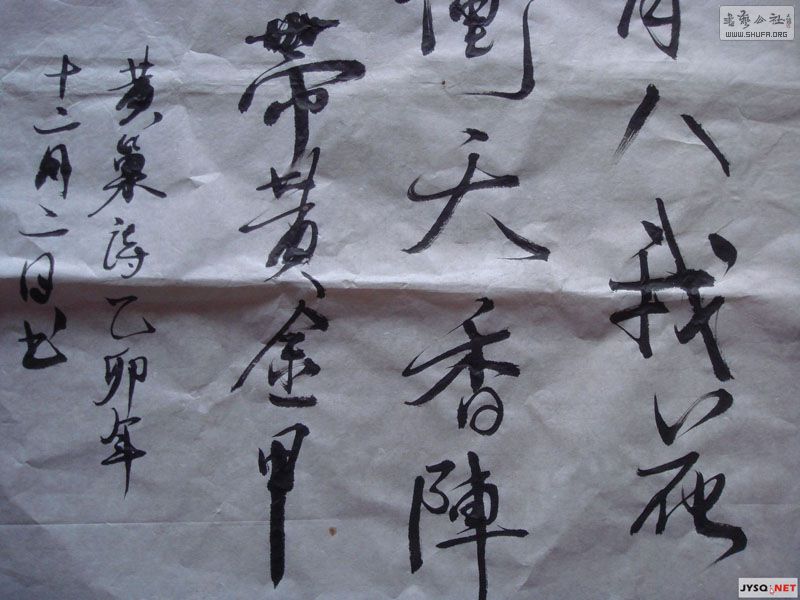 月八我花
衝天香陣
帶黄金甲
黄巢詩乙卯年
十二月二日书
書藝公社
WWW.SHUFA.ORG
JYSQ.NET